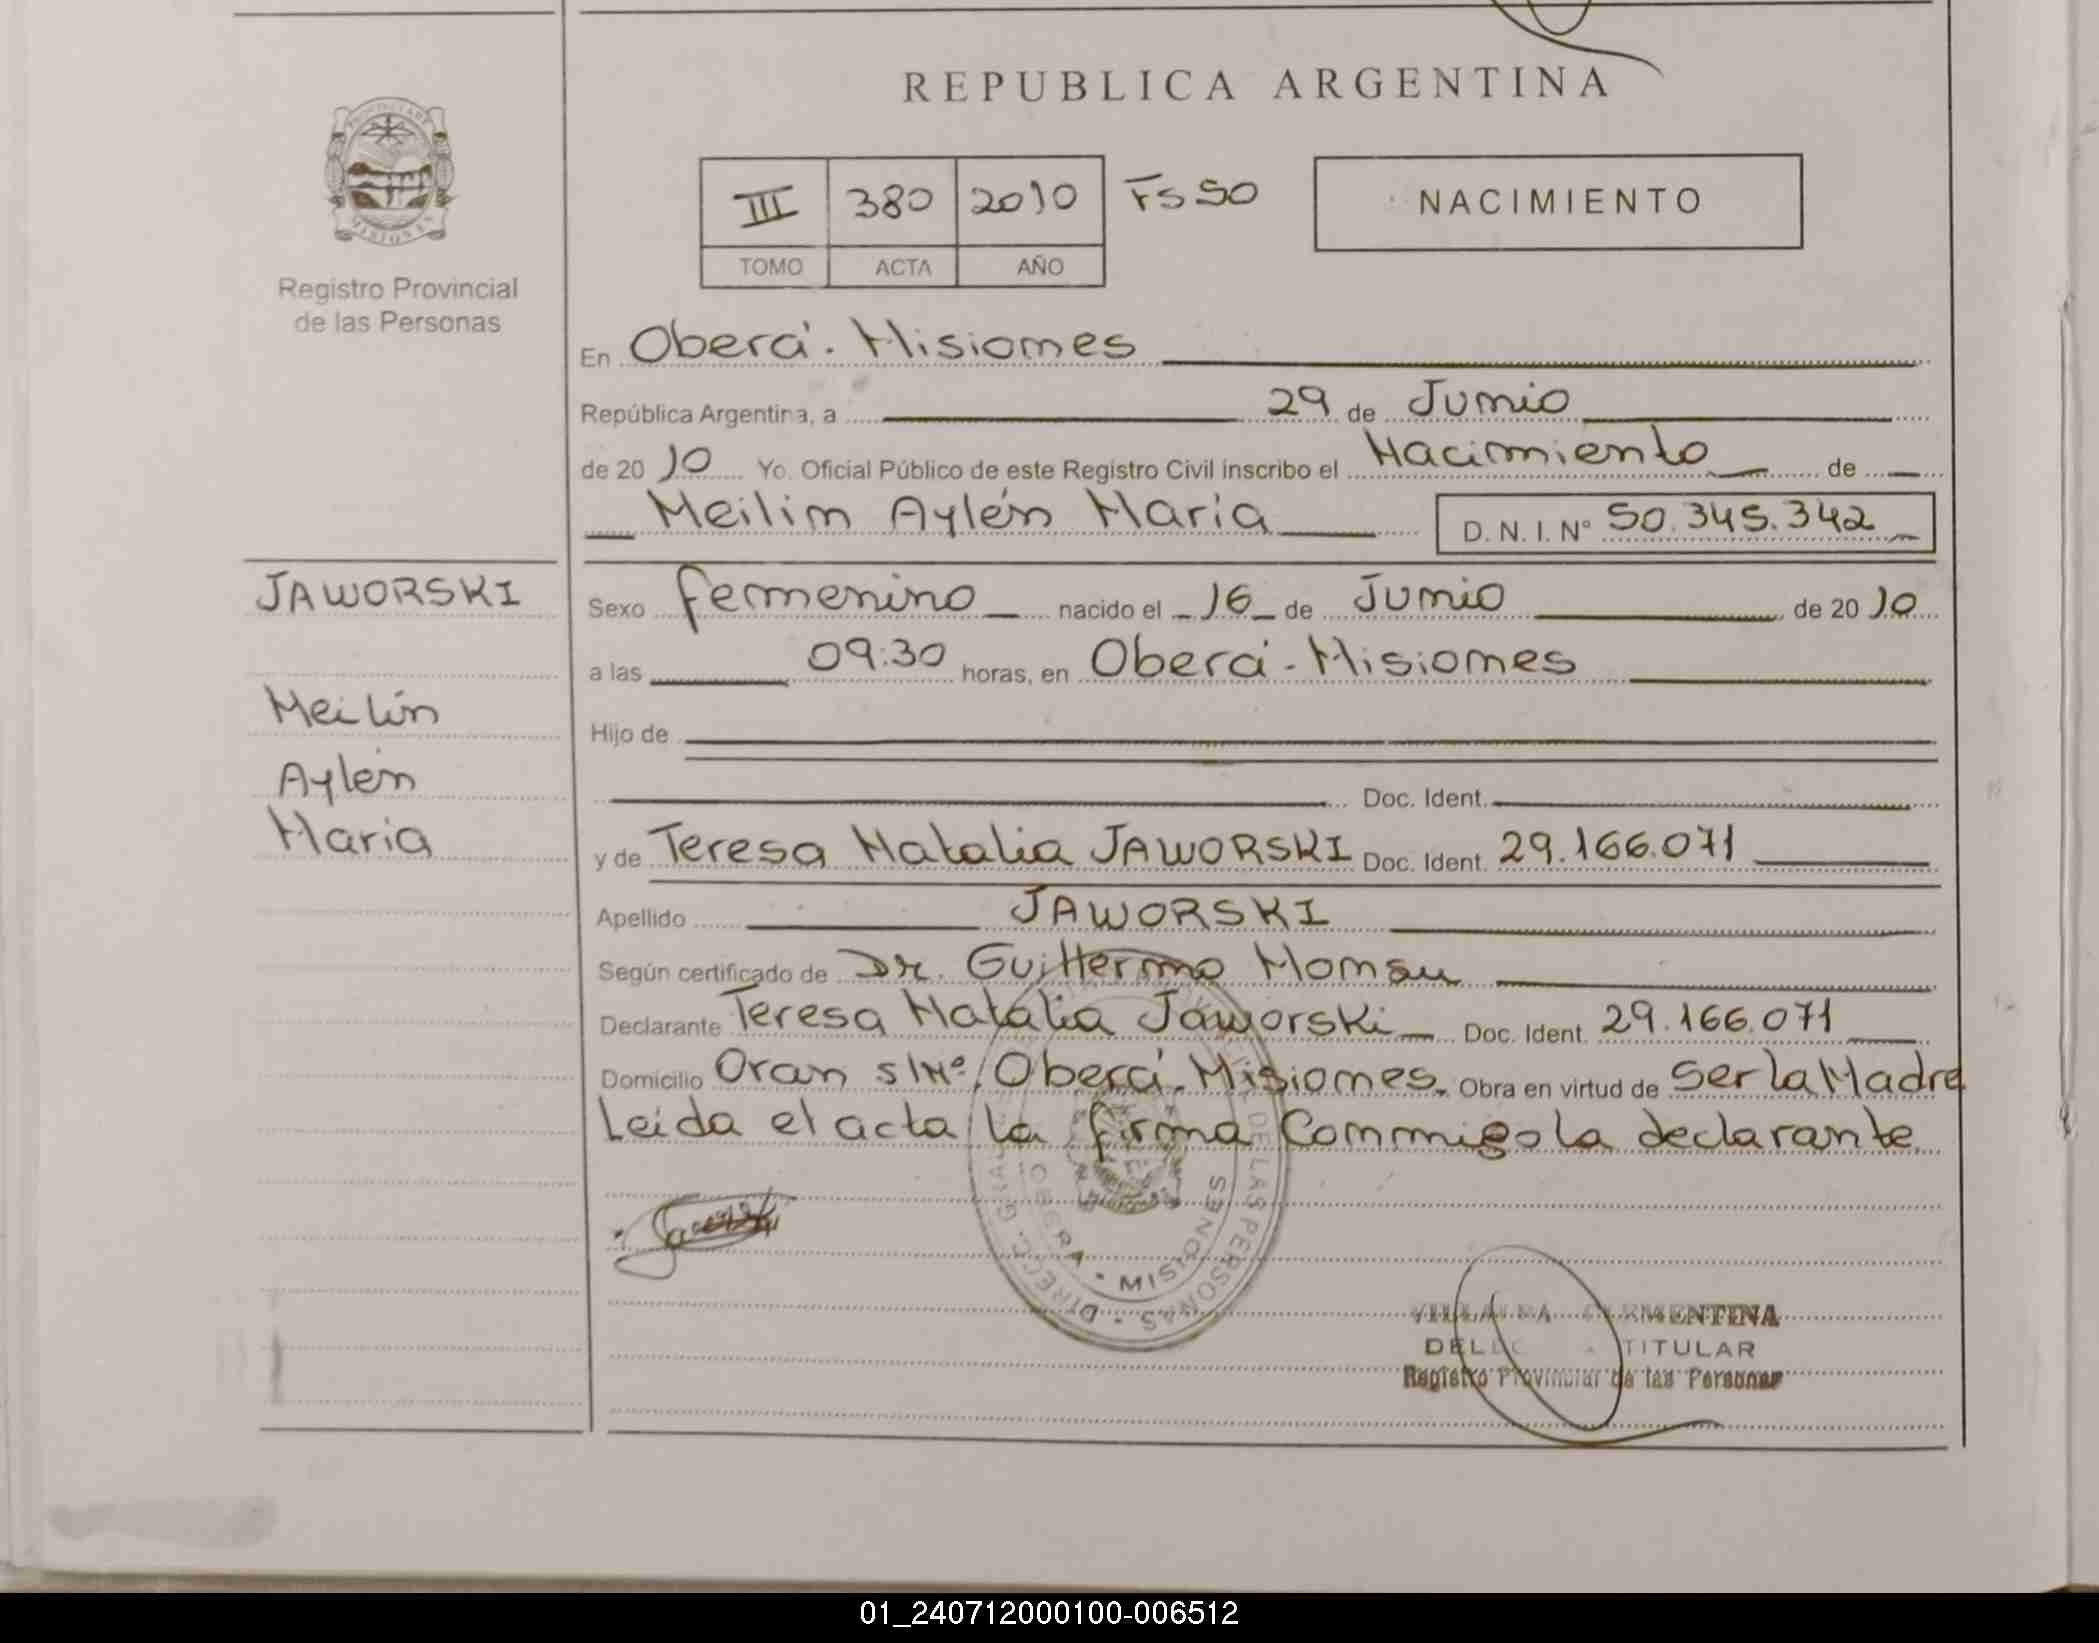 REPUBLICA ARGENTINA
III 380 2010 Fs 50
TOMO ACTA AÑO
NACIMIENTO
Registro Provincial
de las Personas
En Oberá. Misiones
República Argentina, a 29 de Junio
de 20 10 Yo. Oficial Público de este Registro Civil inscribo el Nacimiento de
Meilin Aylén María D. N. I. N° 50.345.342
JAWORSKI
Meilín
Aylén
María
Sexo femenino nacido el 16 de Junio de 20 10
a las 09:30 horas, en Oberá - Misiones
Hijo de
Doc. Ident.
y de Teresa Natalia JAWORSKI Doc. Ident. 29.166.071
Apellido JAWORSKI
Según certificado de Dr. Guillermo
Declarante Teresa Natalia Jaworski Doc. Ident. 29.166.071
Domicilio Oran s/Nº, Oberá - Misiones. Obra en virtud de Ser la Madre
Leída el acta la firma Conmigo la declarante
DE LAS PERSONAS
MISIONES
TITULAR
Registro Provincial de las Personas
01_240712000100-006512